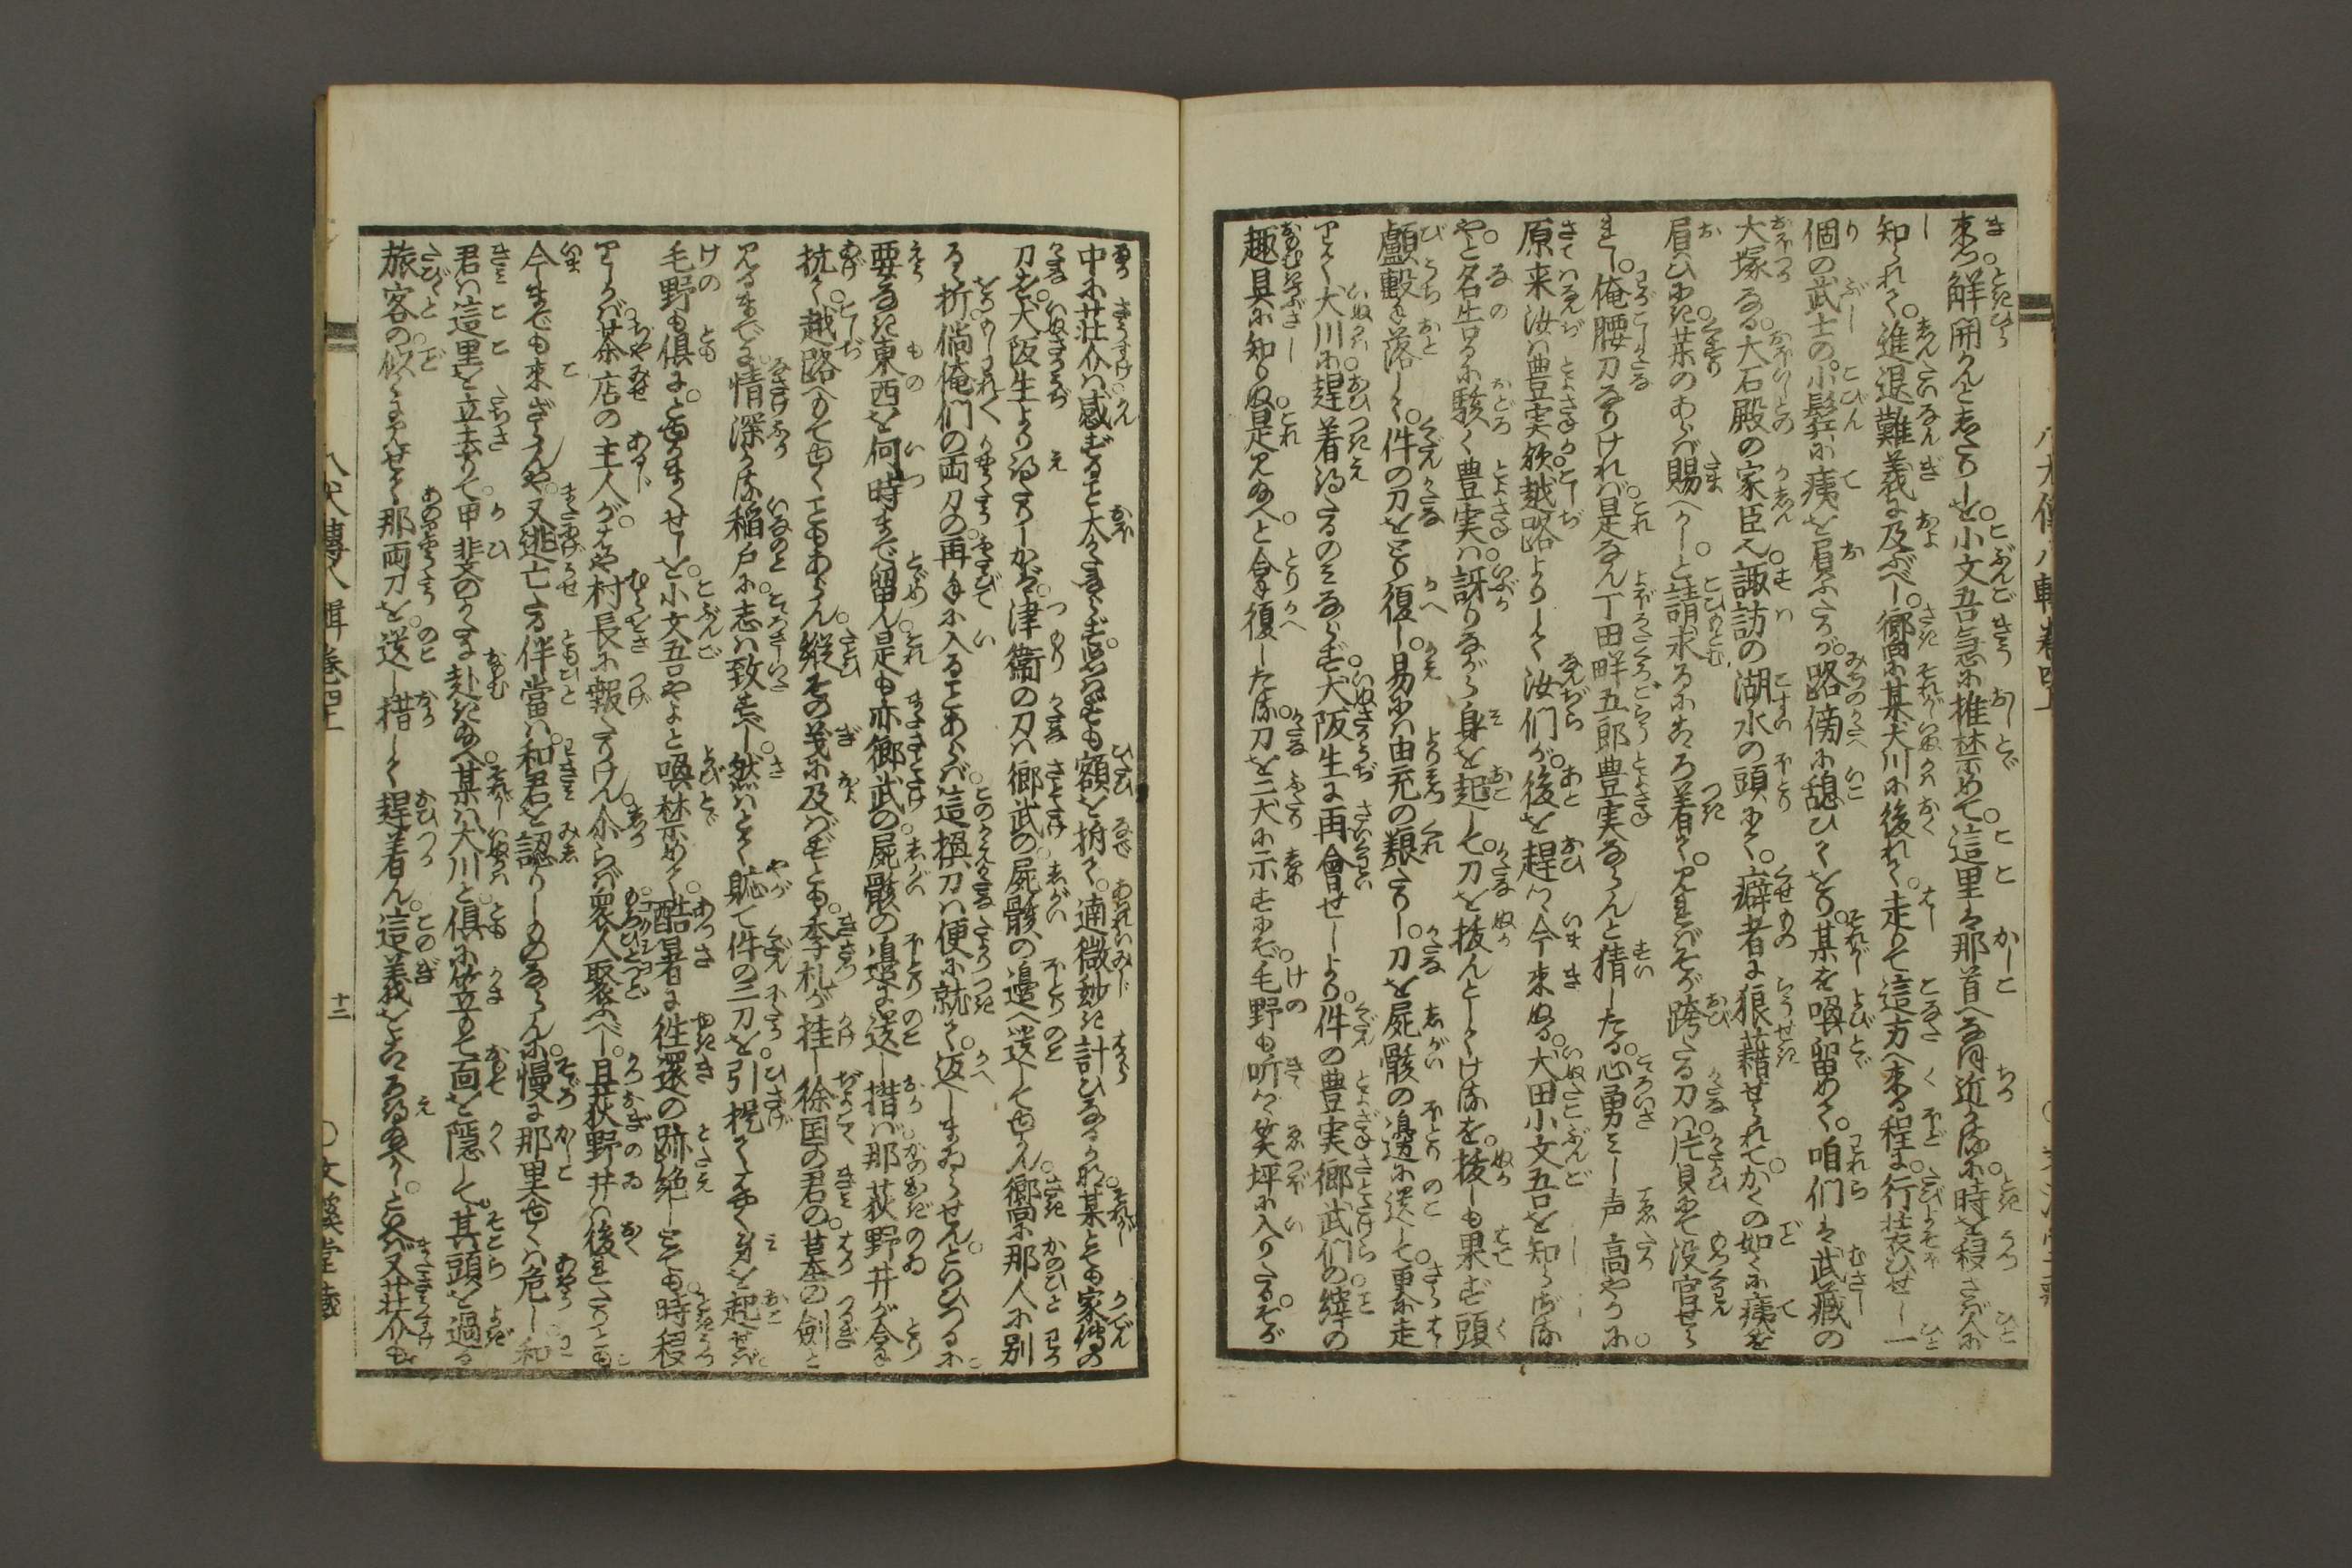 来つ解開かんとしたりしを。小文吾急に推禁めて。這里は那首へなほ近かるに。時を移さば人に
知られて。進退難義に及ぶべし。嚮に某犬川に後れて。走りて這方へ来る程に。行装ひせし一
個の武士の。小鬢に痍を負ふたるが。路傍に憩ひてをり。某を喚留めて。咱們は武蔵の
大塚なる。大石殿の家臣也。諏訪の湖水の頭にて。癖者に狼藉せられて。かくの如くに痍を
負ひにき。薬のあらば賜へかし。と請求るにぞ。ちか着て。見ればそが跨たる刀は。
俺腰刀なりければ。是なん丁田畔五郎豊実ならんと猜したる。心勇みし声高やかに。
原来汝は豊実欤。越路よりして汝們が。後を趕ふて今来ぬる。犬田小文吾を知らずや。
やと名告るに駭く豊実は。訝りながら身を起して。刀を抜んとしける を。抜しも果ず頭
顱を撃落して。件の刀をとり復し。易るに由充の刀をもて 。刀を屍骸の邊に遺して。更に走
りて犬川に趕着得たるのみならず。犬阪生に再會せしより。件の豊実郷武們の縡の
趣具に知りぬ。是見給へと合手復したる。刀を二犬に示すにぞ。毛野も听つゝ笑坪に入りたる。そが
中に荘介は。感ずること大かたならず。思はずも額を拊て。適微妙き計ひなるかな。某とても家傳の
刀を。犬阪生より得たりしかば。津衛の刀は郷武の屍骸の邊へ遺してき。嚮に那人に別
るゝ折。倘俺們の両刀の。再手に入ることあらば。這換刀は便に就て。返しまゐらせん。といひつるに
要なき東西を何時まで留ん。是も亦郷武の屍骸の邊に遺し措ば。那荻野井が合手
抗て。越路へもて往くこともあらん。縦その義に及ばずとも。季札が挂し徐国の君の。墓の剣と
見るまでに。情深かる稲戸に。志は致すべし。然はとて軈て件の三刀を。引提て 身を起せば。
毛野も倶に。と 立まくせしを。小文吾やよと喚禁めて。酷暑に往還の跡絶しとても。時移
りなば茶店の主人が。はや村長に報たりけん。尓らば衆人聚ふべし。且荻野井は後れたりとも
今までも来ざらんや。又逃亡たる伴當は。和君を認りしものならんに。慢に那里へ往くは危し。和
君は這里を立去りて。甲斐のかたに赴き給へ。某は犬川と。倶に笠もて面を隠して。其頭を過る
旅客の。如くに見せて。那両刀を。遺し措して趕着ん。這義をこゝろ得給へかし。といへば又荘介も
八犬傳八輯巻四上
十二
○文溪堂蔵